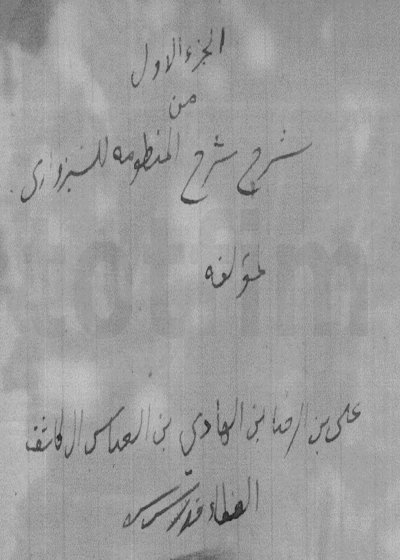 الجزء الاول
من
شرح شرح المنظومه للسبزواري
لمؤلفه
علي بن الرضا بن الهادي بن العباس ال كاشف
الغطاء قدس سره